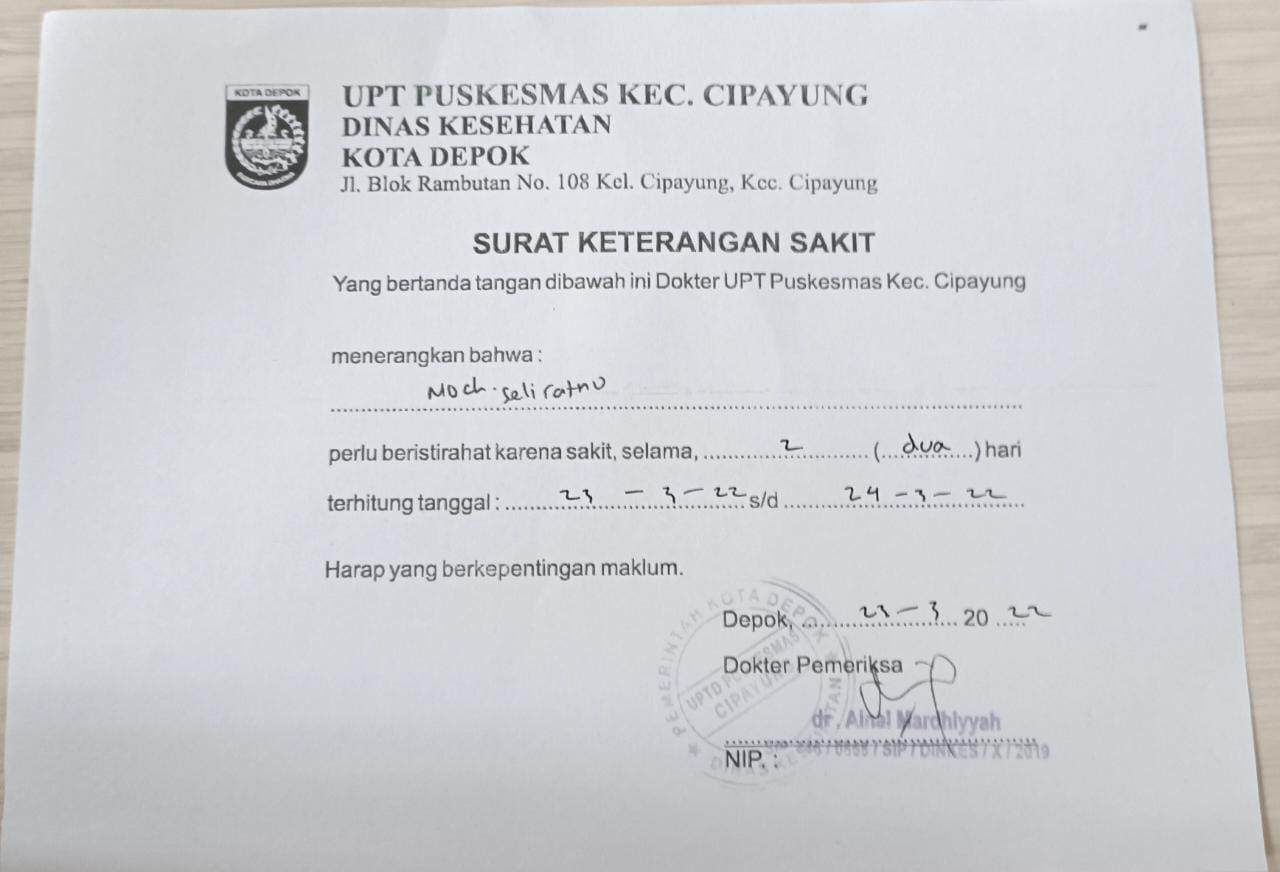 KOTA DEPOK
UPT PUSKESMAS KEC. CIPAYUNG
DINAS KESEHATAN
KOTA DEPOK
Jl. Blok Rambutan No. 108 Kel. Cipayung, Kec. Cipayung
SURAT KETERANGAN SAKIT
Yang bertanda tangan dibawah ini Dokter UPT Puskesmas Kec. Cipayung
menerangkan bahwa :
Moch. Seliratno
perlu beristirahat karena sakit, selama, 2 (dua) hari
terhitung tanggal : 23 - 3 - 22 s/d 24 - 3 - 22
Harap yang berkepentingan maklum.
Depok, 23 - 3 20 22
Dokter Pemeriksa
dr. Ainal Mardhiyyah
NIP. : / SIP / DINKES / X / 2019
PEMERINTAH KOTA DEPOK
UPTD PUSKESMAS
CIPAYUNG
DINAS KESEHATAN